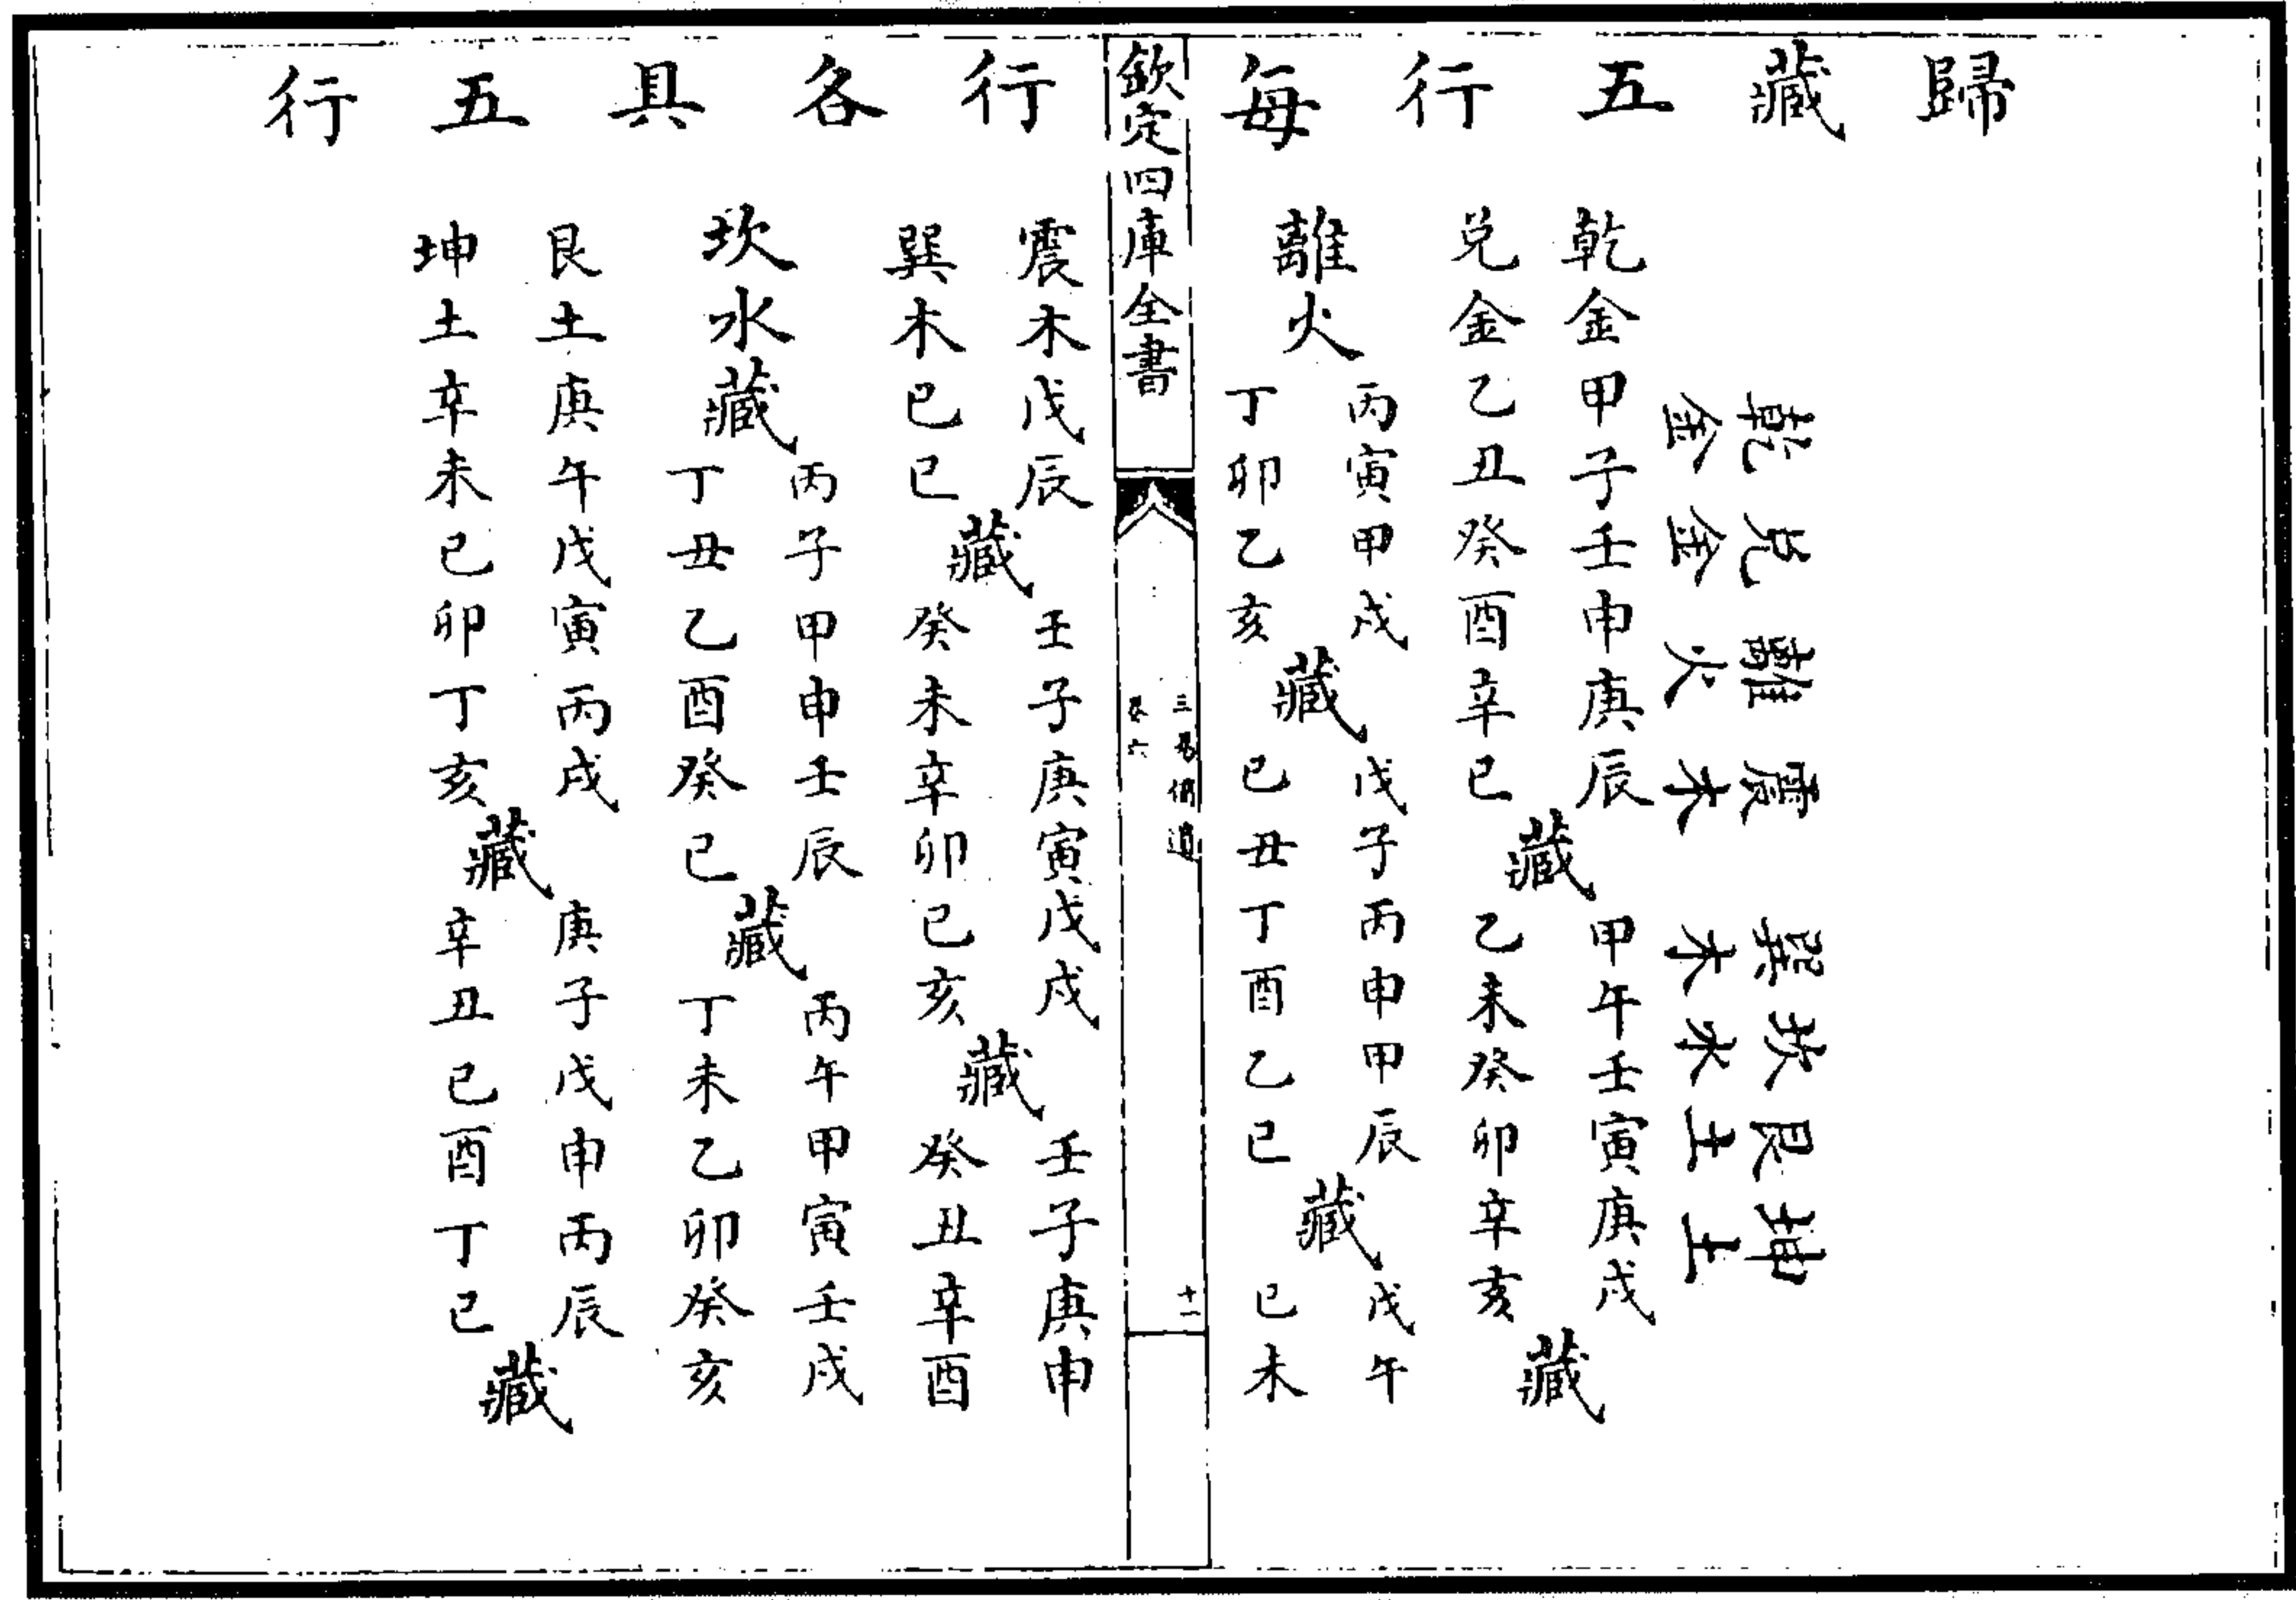 歸藏五行每行各具五行
乾兌離震巽坎艮坤
金金火木木水土土
乾金甲子壬申庚辰藏甲午壬寅庚戌藏
兌金乙丑癸酉辛巳藏乙未癸卯辛亥藏
離火丙寅甲戌藏戊子丙申甲辰藏戊午
丁卯乙亥藏己丑丁酉乙巳藏己未
欽定四庫全書
三易備遺
卷六
十一
震木戊辰藏壬子庚寅戊戌藏壬子庚申
巽木己巳藏癸未辛卯己亥藏癸丑辛酉
坎水藏丙子甲申壬辰藏丙午甲寅壬戌
丁丑乙酉癸巳藏丁未乙卯癸亥
艮土庚午戊寅丙戌藏庚子戊申丙辰藏
坤土辛未己卯丁亥藏辛丑己酉丁巳藏